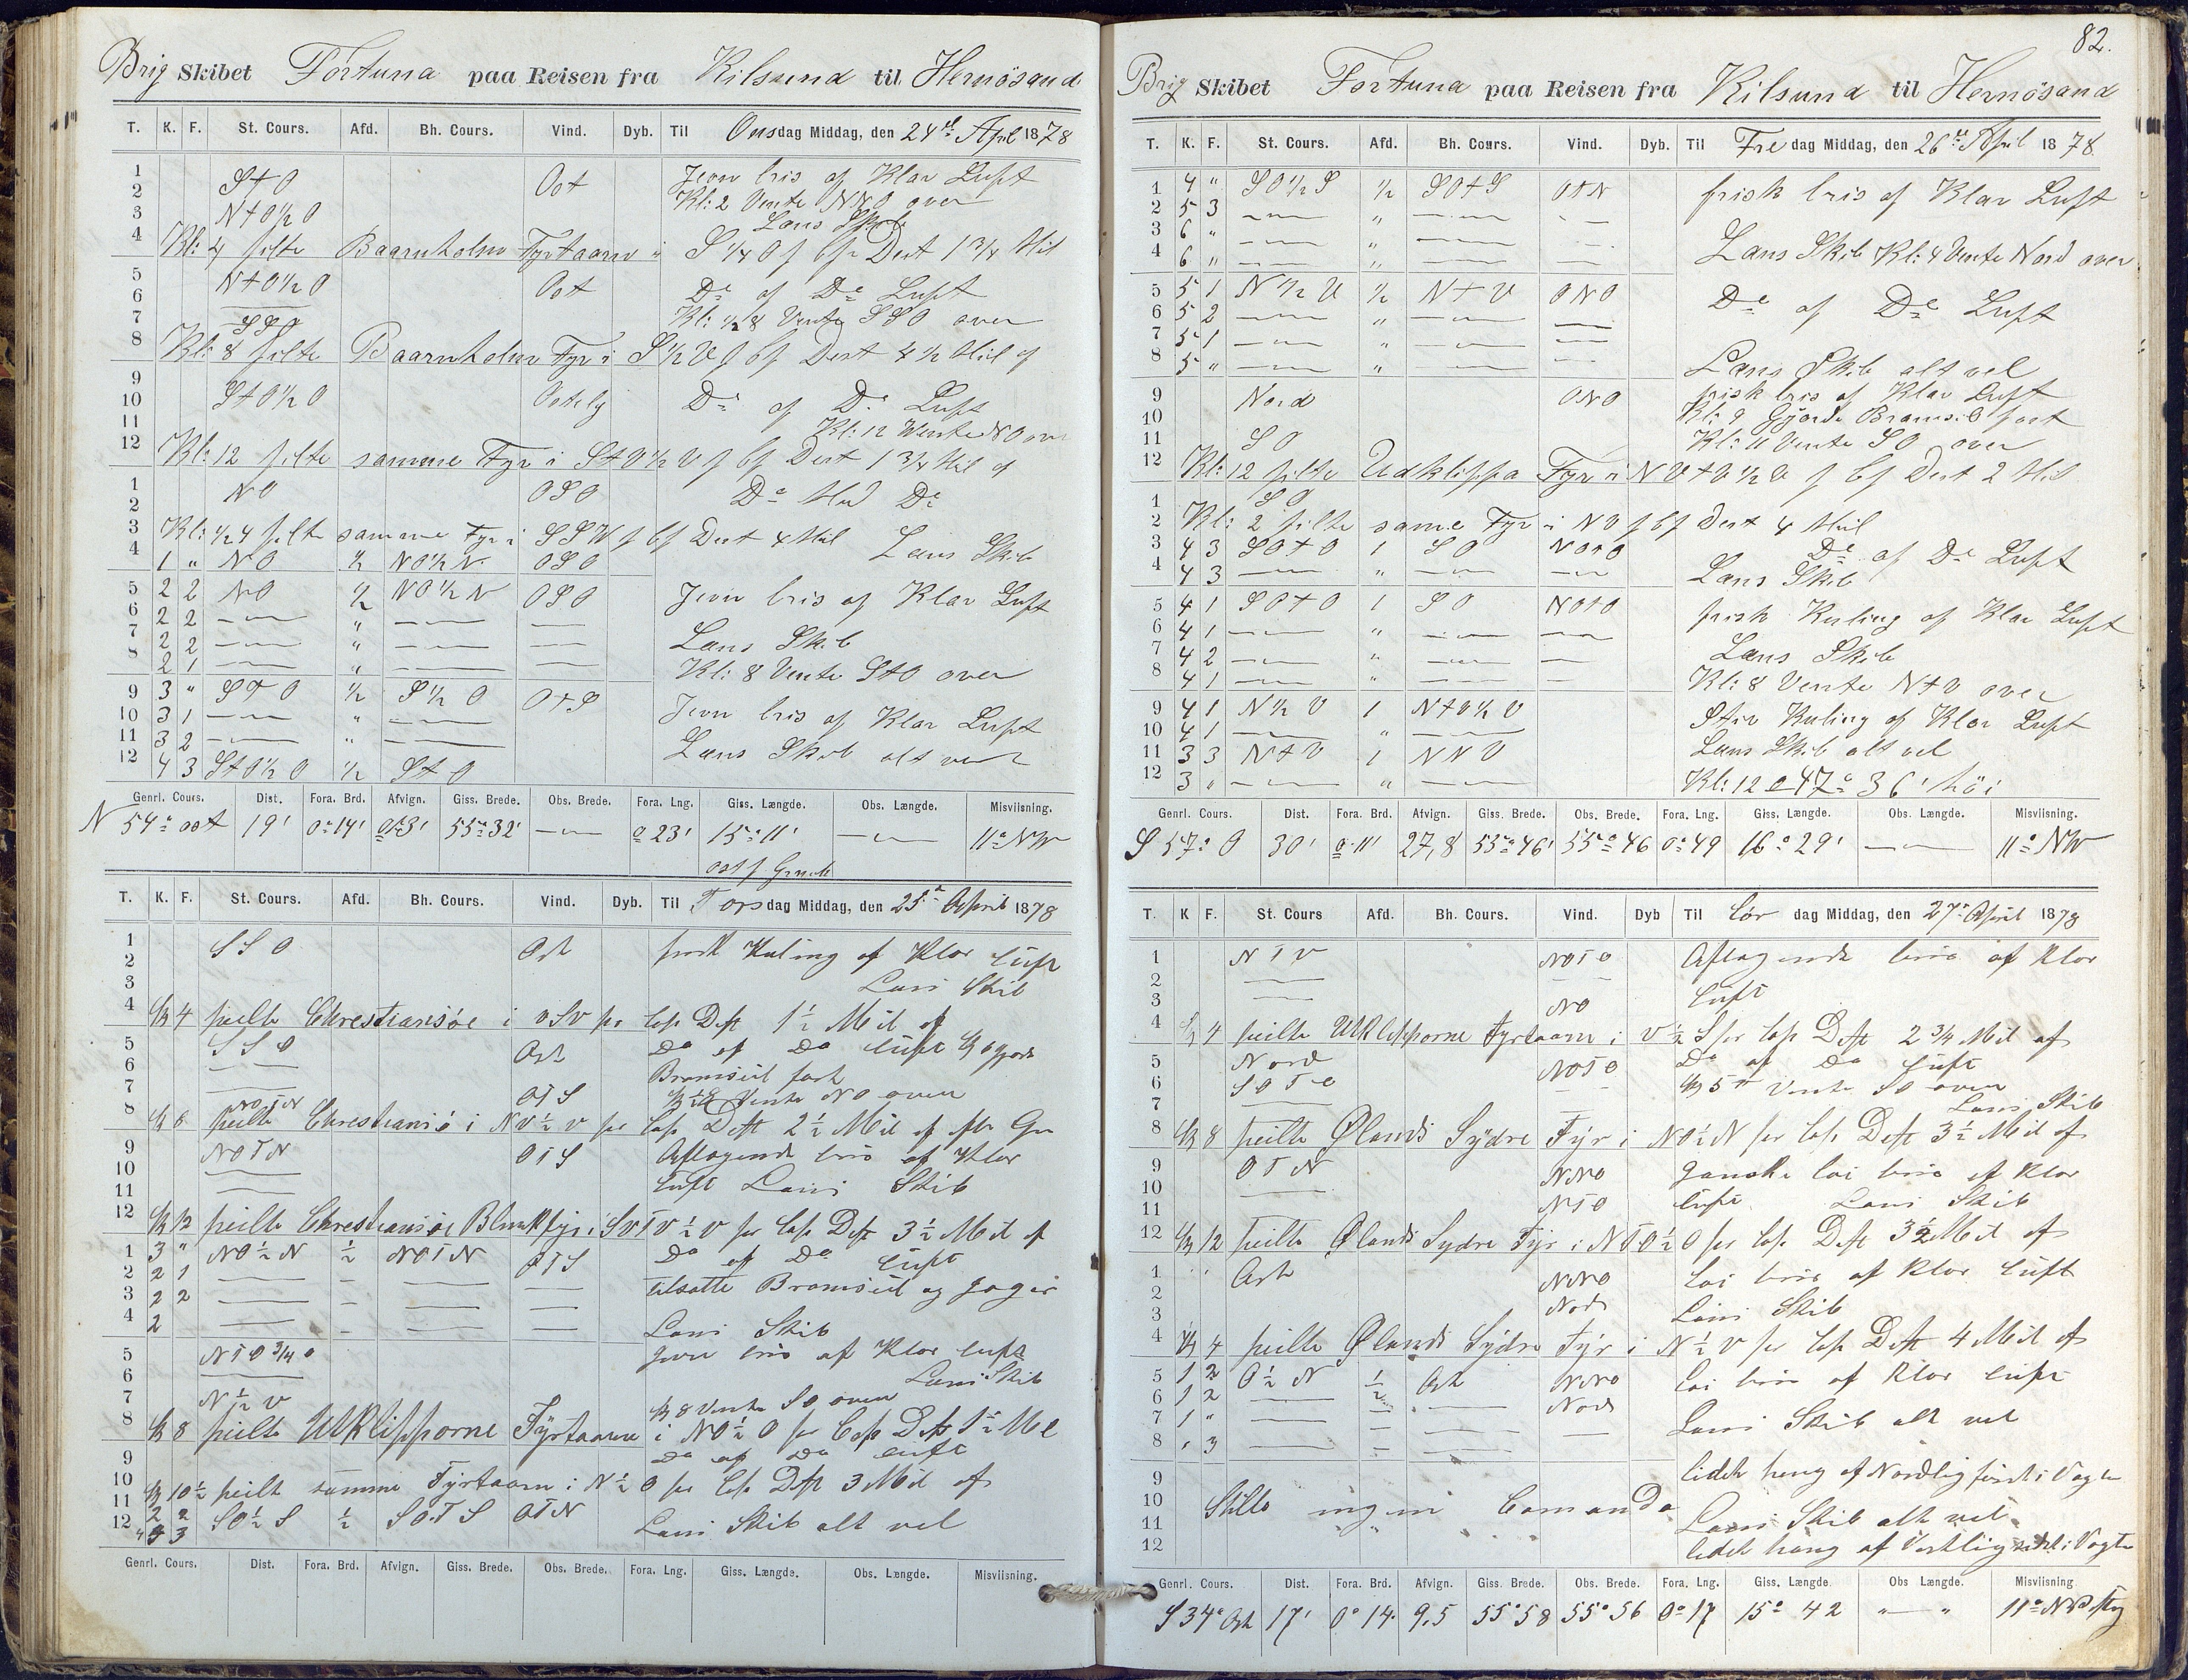 Brig Skibet Fortuna paa Reisen fra Kilsund til Hernösand
T. K. F. St. Cours. Afd. Bh. Cours. Vind. Dyb. Til Onsdag Middag, den 24de April 1878
1 StO Ost Jevn bris af Klar Luft
2 Kl: 2 Vente NNO over
3 Nt O½ O Lans Skib
4 Kl: 4 pilte Baarnholm Fyrtaarn i S ¼ O Dest 1 ¾ Mil
5 Nt O½ O Ost Do af Do Luft
6
7 SSO Kl: ½ 8 Vente SSO over
8 Kl: 8 pilte Baarnholm Fyr i S ½ V Dest 4 ½ Mil af
9 St O½ O Ostelig Do af Do Luft
10
11 Kl: 12 Wente NO over
12 Kl: 12 pilte samme Fyr i St O ½ V Dest 1 ¾ Mil af
1 NO OSO Do Med Do
2
3 Kl: ½ 4 pilte samme Fyr i SSW Dest 4 Mil Lans Skib
4 1 " NO ½ NO ½ N OSO
5 2 2 NO ½ NO ½ N OSO Jevn bris af Klar Luft
6 2 2 — " — —
7 2 2 — " — — Lans Skib
8 2 1 — " — — Kl: 8 Vente StO over
9 3 " StO ½ S ½ O OtS
10 3 1 — " — Jevn bris af Klar Luft
11 3 2 — " — Lans Skib alt vel
12 4 3 St O½ O ½ St O
Genrl. Cours. Dist. Fora. Brd. Afvign. Giss. Brede. Obs. Brede. Fora. Lng. Giss. Længde. Obs. Længde. Misviisning.
N 54° ost 19' 0° 14' 55° 32' — 0 23' 15° 11' — 11° NW
ost f Grinds
T. K. F. St. Cours. Afd. Bh. Cours. Vind. Dyb. Til Torsdag Middag, den 25de April 1878
1 SSO Ost frisk Kuling af Klar Luft
2
3 Lans Skib
4 Kl 4 peilte Chrestiansöe i VSV pr Cop Dist 1½ Mil af
5 SSO Ost Do af Do Luft Kl 6 gjorde
6 — — Bramseil fast
7 — OTS Vente NO over
8 NOTN
Kl 8 peilte Chrestiansö i NV½V pr Cop Dist 2½ Mil af
9 NOTN OTS Aflagende bris af Klar
10 —
11 — Luft Lans Skib
12 Kl 12 peilte Chrestiansöe Blinkfyr i SVTV½V pr Cop Dist 3½ Mil af
1 3 " NO½N ½ NOTN OTS Do af Do Luft
2 2 1 — — — — tilsatte Bramseil og Jager
3 2 2 — — — —
4 2 — — — — Lans Skib
5 NTO¾O Jevn bris af Klar Luft
6 — Lans Skib
7 N½V Kl 8 Vente SO over
8 Kl 8 peilte Utklipporne Fyrtaarn i NO½O pr Cop Dist 1½ Mil
9 Do af Do Luft
10 Kl 10½ peilt samme Fyrtaarn i N½O pr Cop Dist 3 Mil af
11 2 2
12 4 3 SO½S ½ SOTS OTN Lans Skib alt vel
Genrl. Cours. Dist. Fora. Brd. Afvign. Giss. Brede. Obs. Brede. Fora. Lng. Giss. Længde. Obs. Længde. Misviisning.
82.
Brig Skibet Fortuna paa Reisen fra Kilsund til Hernösand
T. K. F. St. Cours. Afd. Bh. Cours. Vind. Dyb. Til Fredag Middag, den 26de April 1878
1 4 " SO½S ½ SOtS OtN frisk bris af Klar Luft
2 5 3 — " — —
3 6 " — " — —
4 6 " — " — — Lans Skib Kl: 4 Vente Nord over
5 5 1 N½V ½ NtV ONO Do af Do Luft
6 5 2 — " — —
7 5 1 — " — —
8 5 " — " — — Lans Skib alt vel
9 Nord ONO frisk bris af Klar Luft
10 Kl: 9 Gjorde Bramseil fast
11 SO Kl: 11 Vente SO over
12 Kl: 12 pilte Udklippa Fyr i NVtV½V Dest 2 Mil
1 SO
2 Kl: 2 pilte same Fyr i NV Dest 4 Mil
3 4 3 SOtO 1 SO NOtO Do af Do Luft
4 4 3 — " — — Lans Skib
5 4 1 SOtO 1 SO NOtO frisk Kuling af Klar Luft
6 4 1 — " — —
7 4 2 — " — — Lans Skib
8 4 1 — " — — Kl: 8 Vente NtV over
9 4 1 N½V 1 NtV½V Stiv Kuling af Klar Luft
10 4 1 — " —
11 3 3 NtV 1 NNV Lans Skib alt vel
12 3 " — " — Kl: 12 47° 36' höi
Genrl. Cours. Dist. Fora. Brd. Afvign. Giss. Brede. Obs. Brede. Fora. Lng. Giss. Længde. Obs. Længde. Misviisning.
S 57° O 30' 0° 11' 27,8 55° 46' 55° 46 0° 49 16° 29' — 11° NW
T. K F. St. Cours Afd. Bh. Cours. Vind. Dyb Til Lördag Middag, den 27de April 1878
1 NTV NOTO Aflagende bris af Klar
2 —
3 — NO Luft
4 Kl 4 peilte Utklipporne Fyrtaarn i V½S pr Cop Dist 2¾ Mil af
5 Nord NOTO Do af Do Luft
6 SOTO — Vente SO over
7 — Lans Skib
8 Kl 8 peilte Ølands Sydre Fyr i NO½N pr Cop Dist 3½ Mil af
9 OTN NNO Ganske lai bris af Klar
10 —
11 NTO Luft Lans Skib
12 Kl 12 peilte Ølands Sydre Fyr i NTO½O pr Cop Dist 3½ Mil af
1 Ost NNO Lai bris af Klar Luft
2
3 Nord Lans Skib
4 Kl 4 peilte Ølands Sydre Fyr i N½V pr Cop Dist 4 Mil af
5 1 2 O½N ½ Ost NNO Lai bris af Klar Luft
6 1 2 — — — Nord
7 1 " — — — — Lans Skib alt vel
8 " 3 — — — —
9 lidet hang af Nordlig först i Vagten
10 Stille ingen Comando
11 Lans Skib alt vel
12 lidet hang af Vestlig sidst i Vagten
Genrl. Cours. Dist. Fora. Brd. Afvign. Giss. Brede. Obs. Brede. Fora. Lng. Giss. Længde. Obs Længde. Misviisning
S 34° Ost 17' 0° 14 9,5 55° 58 55° 56 0° 17 15° 42 " — " 11°